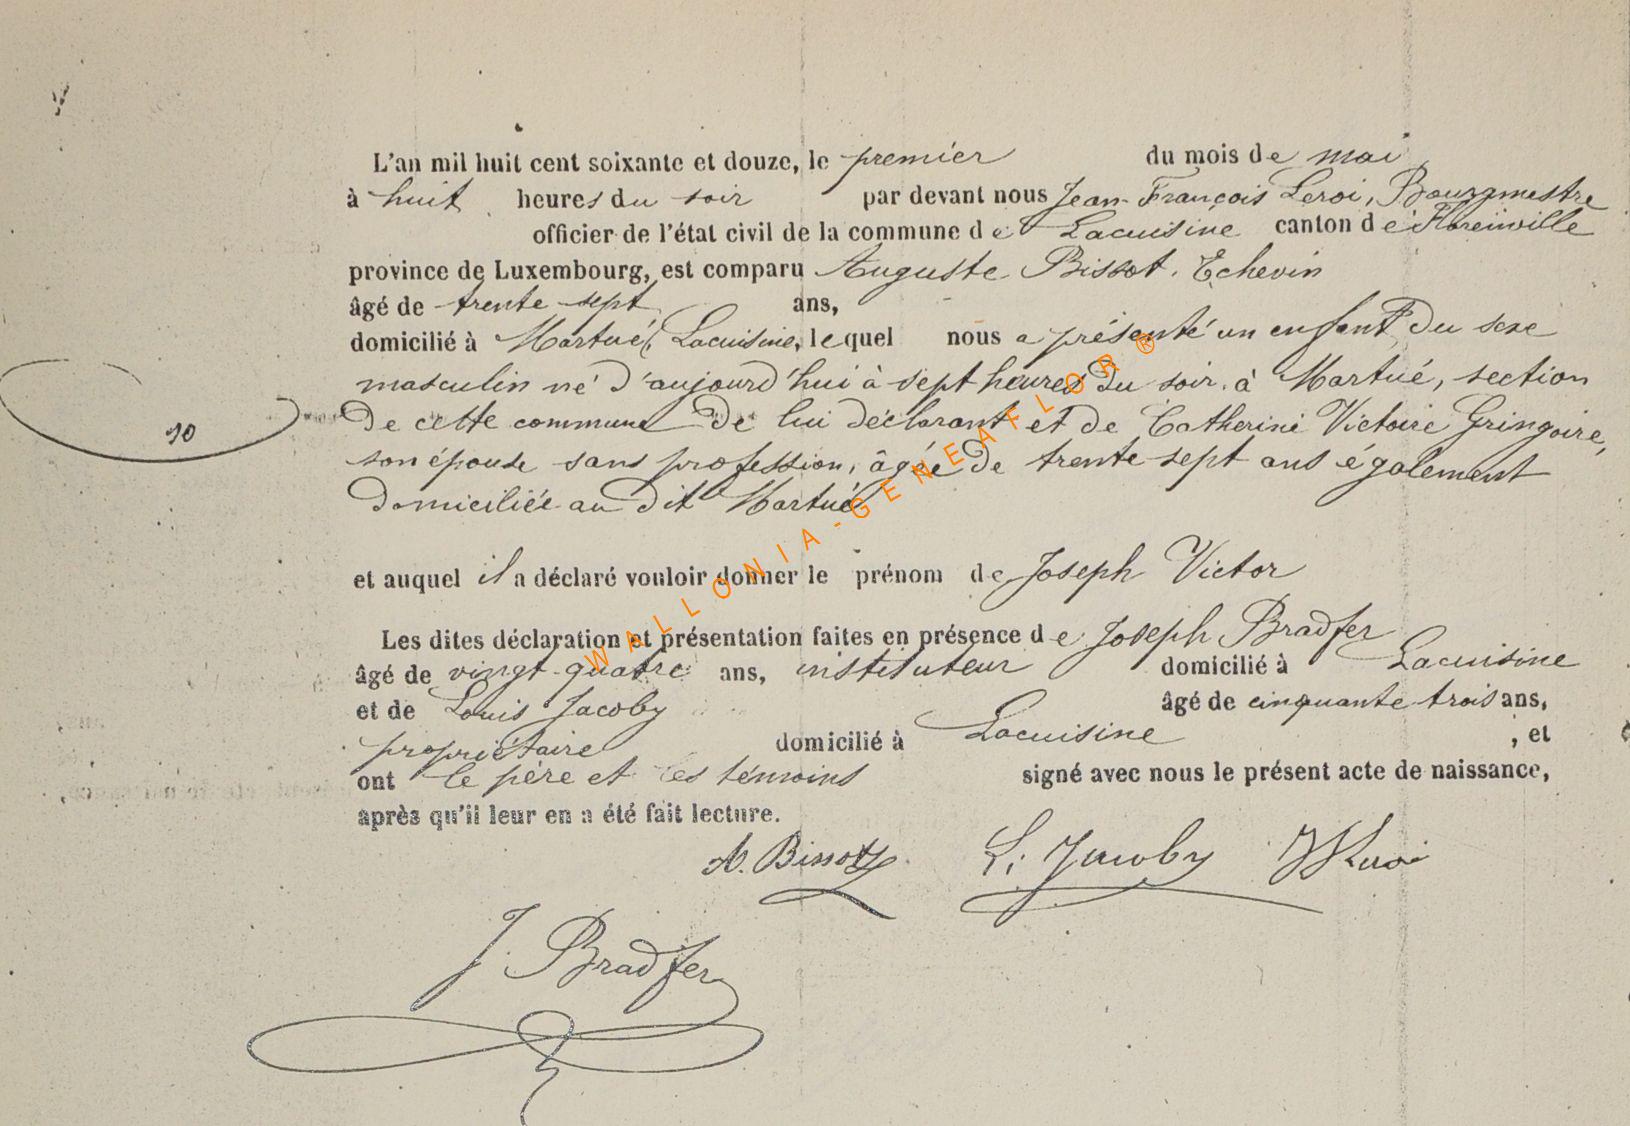 L'an mil huit cent soixante et douze, le premier du mois de mai
à huit heures du soir par devant nous Jean-François Leroi, Bourgmestre
officier de l'état civil de la commune de Lacuisine canton de Florenville
province de Luxembourg, est comparu Auguste Bissot, Echevin
âgé de trente-sept ans,
domicilié à Martué, Lacuisine, lequel nous a présenté un enfant du sexe
masculin né d'aujourd'hui à sept heures du soir, à Martué, section
de cette commune de lui déclarant et de Catherine Victoire Gringoire,
10
son épouse sans profession, âgée de trente-sept ans également
domiciliée au dit Martué
et auquel il a déclaré vouloir donner le prénom de Joseph Victor
Les dites déclaration et présentation faites en présence de Joseph Bradfer
âgé de vingt-quatre ans, instituteur domicilié à Lacuisine
et de Louis Jacoby âgé de cinquante trois ans,
propriétaire domicilié à Lacuisine , et
ont le père et les témoins signé avec nous le présent acte de naissance,
après qu'il leur en a été fait lecture.
A. Bissot L. Jacoby JF Leroi
J. Bradfer
WALLONIA-GENEAFLOR®